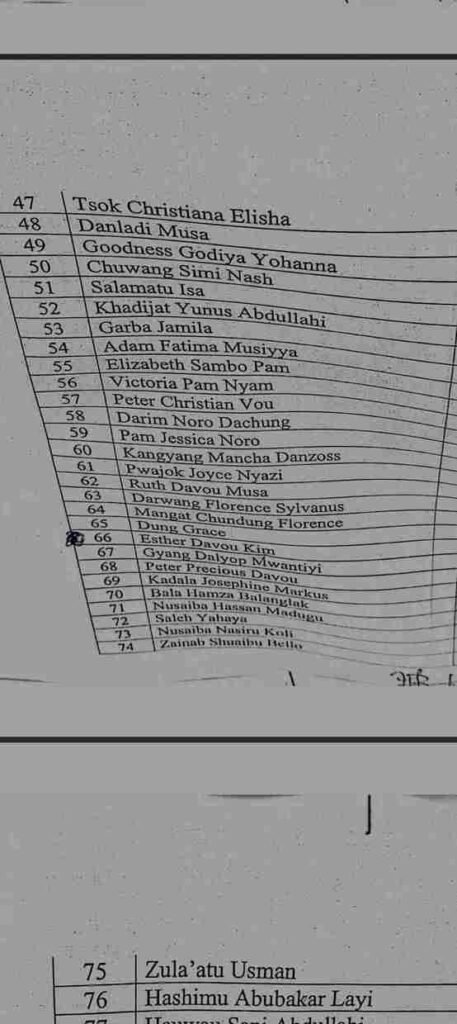 47 Tsok Christiana Elisha
48 Danladi Musa
49 Goodness Godiya Yohanna
50 Chuwang Simi Nash
51 Salamatu Isa
52 Khadijat Yunus Abdullahi
53 Garba Jamila
54 Adam Fatima Musiyya
55 Elizabeth Sambo Pam
56 Victoria Pam Nyam
57 Peter Christian Vou
58 Darim Noro Dachung
59 Pam Jessica Noro
60 Kangyang Mancha Danzoss
61 Pwajok Joyce Nyazi
62 Ruth Davou Musa
63 Darwang Florence Sylvanus
64 Mangat Chundung Florence
65 Dung Grace
66 Esther Davou Kim
67 Gyang Dalyop Mwantiyi
68 Peter Precious Davou
69 Kadala Josephine Markus
70 Bala Hamza Balanglak
71 Nusaiba Hassan Madugu
72 Saleh Yahaya
73 Nusaiba Nasiru Koli
74 Zainab Shuaibu Bello
75 Zula'atu Usman
76 Hashimu Abubakar Layi
77 Sani Abdullahi